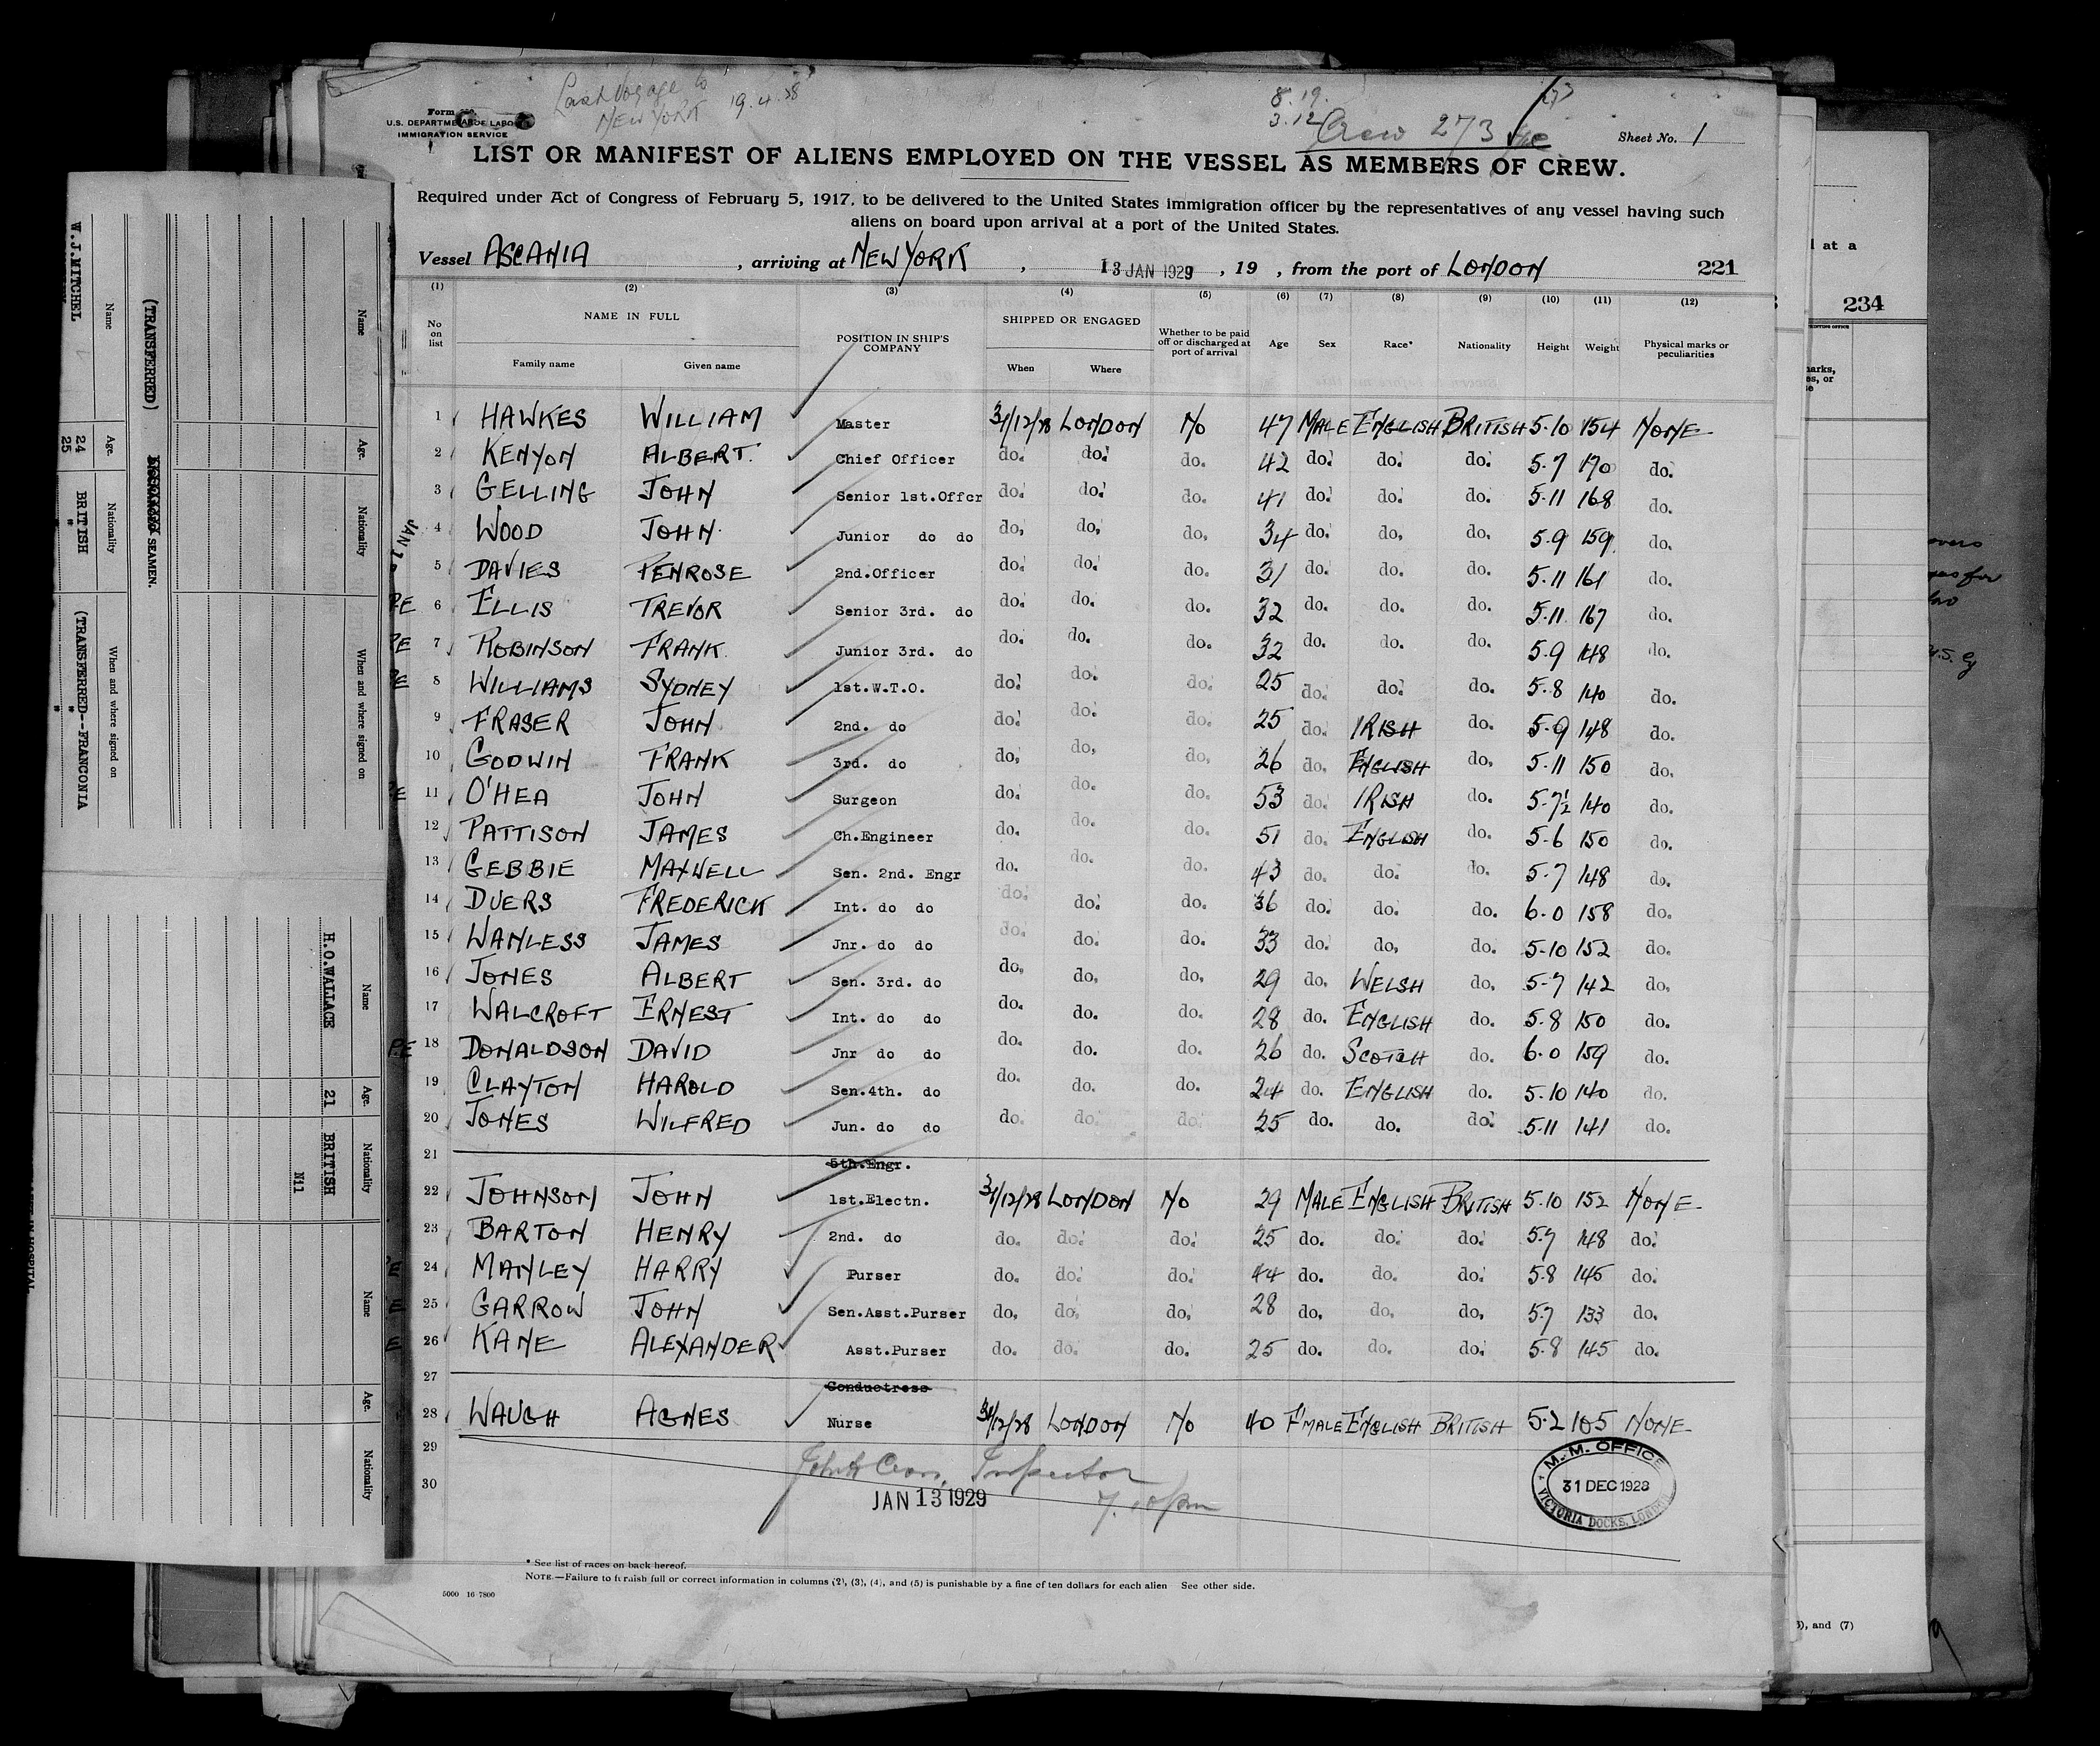 Last Voyage to
NEW YORK 19.4.28
8.19.
3.12
Crew 273
Form
U.S. DEPARTMENT OF LABOR
IMMIGRATION SERVICE
Sheet No. 1
LIST OR MANIFEST OF ALIENS EMPLOYED ON THE VESSEL AS MEMBERS OF CREW.
Required under Act of Congress of February 5, 1917, to be delivered to the United States immigration officer by the representatives of any vessel having such
aliens on board upon arrival at a port of the United States.
Vessel ASCANIA, arriving at NEW YORK, 13 JAN 1929, 19 , from the port of LONDON 221
(1) (2) (3) (4) (5) (6) (7) (8) (9) (10) (11) (12)
No on list NAME IN FULL Family name Given name POSITION IN SHIP'S COMPANY SHIPPED OR ENGAGED When Where Whether to be paid off or discharged at port of arrival Age Sex Race* Nationality Height Weight Physical marks or peculiarities
1 HAWKES WILLIAM Master 31/12/28 LONDON No 47 MALE ENGLISH BRITISH 5-10 154 NONE
2 KENYON ALBERT. Chief Officer do. do. do. 42 do. do. do. 5-7 170 do.
3 GELLING JOHN Senior 1st.Offcr do. do. do. 41 do. do. do. 5-11 168 do.
JAN
4 WOOD JOHN Junior do do do. do. do. 34 do. do. do. 5-9 159 do.
5 DAVIES PENROSE 2nd.Officer do. do. do. 31 do. do. do. 5-11 161 do.
PE 6 ELLIS TREVOR Senior 3rd. do do. do. do. 32 do. do. do. 5-11 167 do.
PE 7 ROBINSON FRANK Junior 3rd. do do. do. do. 32 do. do. do. 5-9 148 do.
PE 8 WILLIAMS SYDNEY 1st.W.T.O. do. do. do. 25 do. do. do. 5-8 140 do.
9 FRASER JOHN 2nd. do do. do. do. 25 do. IRISH do. 5-9 148 do.
10 GODWIN FRANK 3rd. do do. do. do. 26 do. ENGLISH do. 5-11 150 do.
E 11 O'HEA JOHN Surgeon do. do. do. 53 do. IRISH do. 5-7½ 140 do.
12 PATTISON JAMES Ch.Engineer do. do. do. 51 do. ENGLISH do. 5-6 150 do.
13 GEBBIE MAXWELL Sen. 2nd. Engr do. do. do. 43 do. do. do. 5-7 148 do.
14 DUERS FREDERICK Int. do do do. do. do. 36 do. do. do. 6-0 158 do.
15 WANLESS JAMES Jnr. do do do. do. do. 33 do. do. do. 5-10 152 do.
16 JONES ALBERT Sen. 3rd. do do. do. do. 29 do. WELSH do. 5-7 142 do.
17 WALCROFT ERNEST Int. do do do. do. do. 28 do. ENGLISH do. 5-8 150 do.
P.E 18 DONALDSON DAVID Jnr do do do. do. do. 26 do. SCOTCH do. 6-0 159 do.
19 CLAYTON HAROLD Sen.4th. do do. do. do. 24 do. ENGLISH do. 5-10 140 do.
20 JONES WILFRED Jun. do do do. do. do. 25 do. do. do. 5-11 141 do.
21 5th.Engr.
22 JOHNSON JOHN 1st.Electn. 31/12/28 LONDON No 29 MALE ENGLISH BRITISH 5-10 152 NONE
23 BARTON HENRY 2nd. do do. do. do. 25 do. do. do. 5-7 148 do.
E 24 MANLEY HARRY Purser do. do. do. 44 do. do. do. 5-8 145 do.
E 25 GARROW JOHN Sen.Asst.Purser do. do. do. 28 do. do. do. 5-7 133 do.
E 26 KANE ALEXANDER Asst.Purser do. do. do. 25 do. do. do. 5-8 145 do.
27 Conductress
28 WAUGH AGNES Nurse 31/12/28 LONDON No 40 F'MALE ENGLISH BRITISH 5-2 105 NONE
29
30
Inspector
JAN 13 1929
M.M. OFFICE
31 DEC 1928
VICTORIA DOCKS, LONDON
* See list of races on back hereof.
NOTE.—Failure to furnish full or correct information in columns (2), (3), (4), and (5) is punishable by a fine of ten dollars for each alien See other side.
5000 16 7800
Name Age. Nationality When and where signed on
(TRANSFERRED) SEAMEN.
Name Age. Nationality When and where signed on
W.J.MITCHEL 24 BRITISH (TRANSFERRED--FRANCONIA
25 " "
Name Age. Nationality Name Age. Nationality
H.O.WALLACE 21 BRITISH
Nil
IN HOSPITAL
l at a
234
marks,
es, or
), and (7)